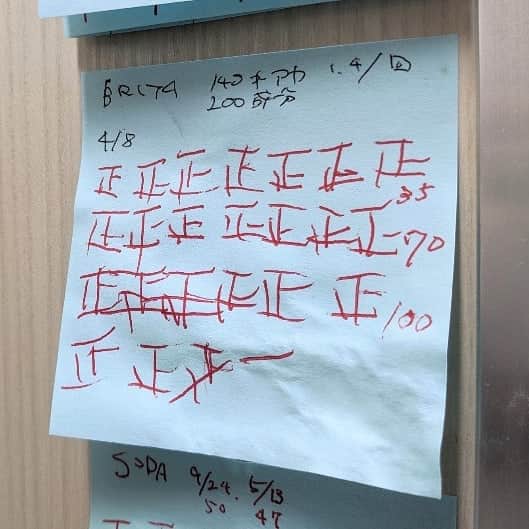 BRITA 140 1.4/回
200
4/8
正 正 正 正 正 正 正
35
正 正 正 正 正 正 正 70
正 正 正 正 正 正 100
正 正 正 一
SODA 4/24. 5/13
50 47